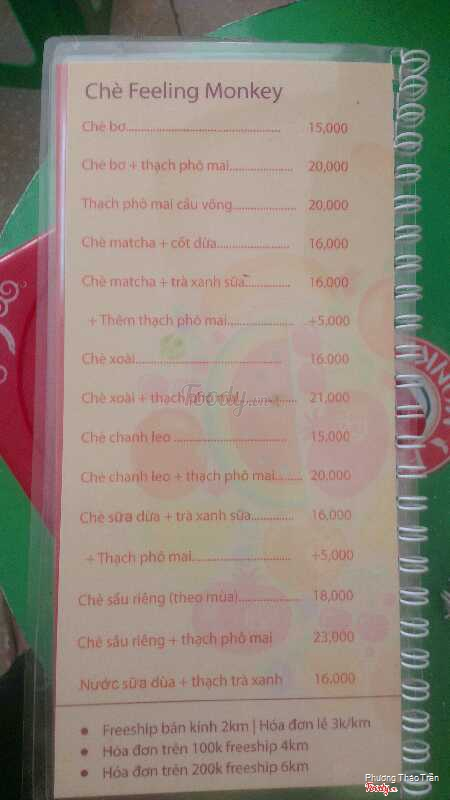 Chè Feeling Monkey
Chè bơ................................................... 15,000
Chè bơ + thạch phô mai..................... 20,000
Thạch phô mai cầu vồng..................... 20,000
Chè matcha + cốt dừa........................ 16,000
Chè matcha + trà xanh sữa............... 16,000
+ Thêm thạch phô mai...................... +5,000
Chè xoài................................................ 16.000
Chè xoài + thạch phô mai................... 21,000
Chè chanh leo ..................................... 15,000
Chè chanh leo + thạch phô mai......... 20,000
Chè sữa dừa + trà xanh sữa.............. 16,000
+ Thạch phô mai................................ +5,000
Chè sầu riêng (theo mùa).................... 18,000
Chè sầu riêng + thạch phô mai 23,000
Nước sữa dùa + thạch trà xanh 16.000
• Freeship bán kính 2km | Hóa đơn lẻ 3k/km
• Hóa đơn trên 100k freeship 4km
• Hóa đơn trên 200k freeship 6km
Foody.vn
Phương Thảo Trần
Foody.vn